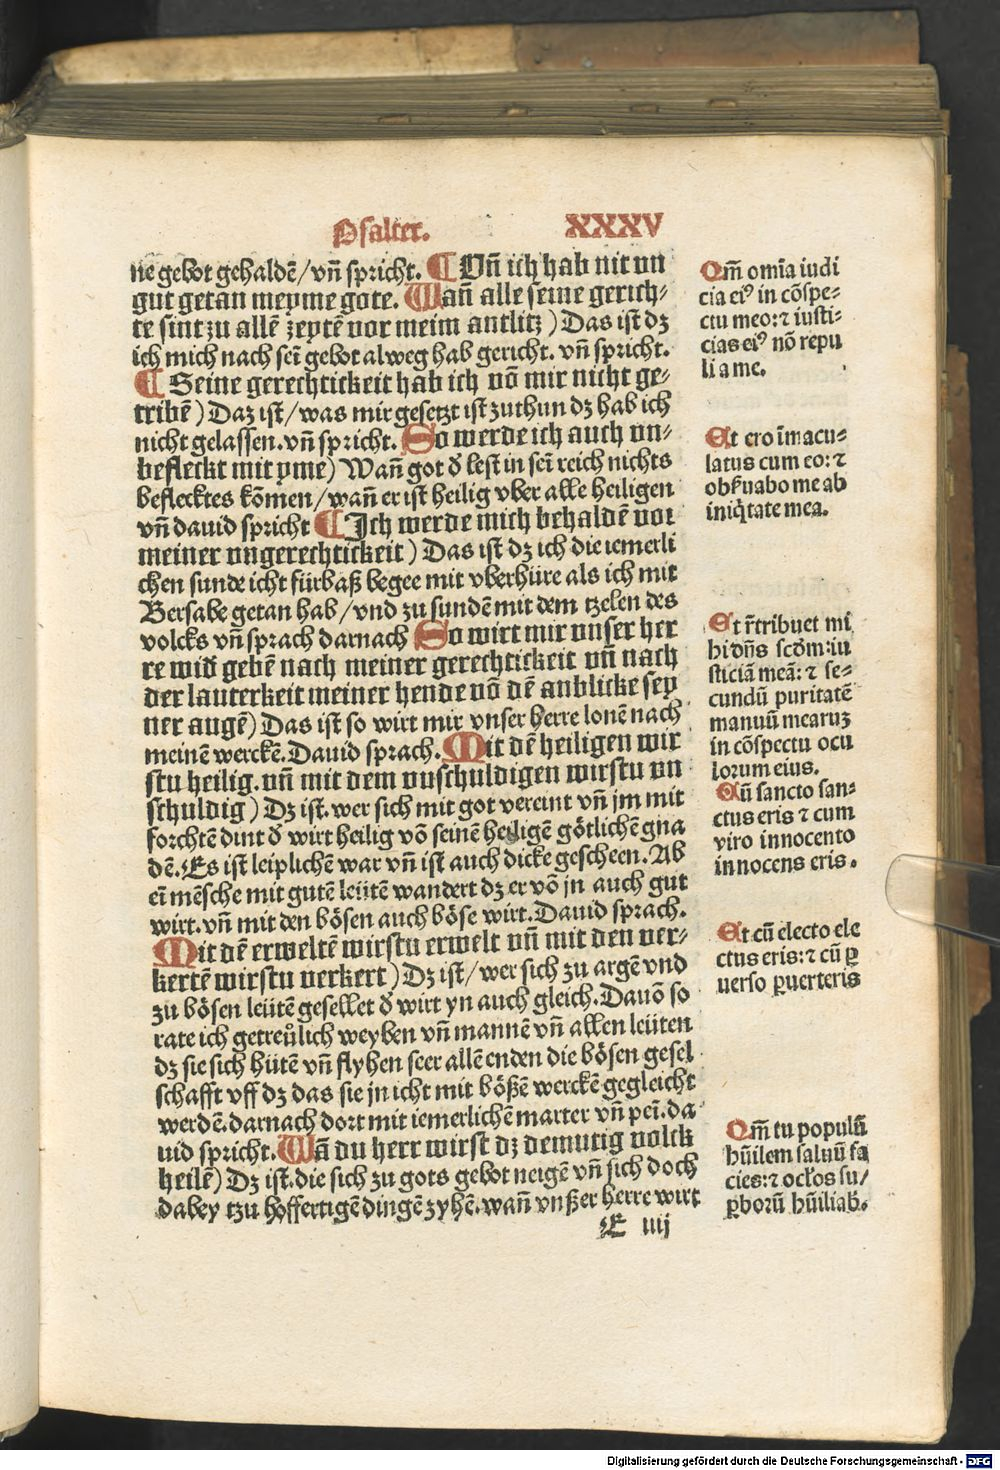 Psalter. XXXV
ne gebot gehaldẽ/vñ spricht. ¶ Vñ ich hab nit vn
gut getan meyme gote. Wañ alle seine gerich⸗
te sint zu allẽ zeytẽ vor meim antlitz) Das ist dz
ich mich nach seī gebot alweg hab gericht. vñ spricht.
¶ Seine gerechtickeit hab ich vō mir nicht ge⸗
tribē) Daz ist/was mir gesetzt ist zuthun dz hab ich
nicht gelassen. vñ spricht. So werde ich auch vn⸗
befleckt mit yme) Wañ got d̕ lest in seī reich nichts
beflecktes kōmen/wañ er ist heilig vber alle heiligen
vñ dauid spricht ¶ Ich werde mich behaldē vor
meiner vngerechtickeit) Das ist dz ich die iemerli
chen sunde icht fürbaß begee mit vberhüre als ich mit
Bersabe getan hab/vnd zu sundē mit dem tzelen des
volcks vñ sprach darnach So wirt mir vnser her
re wid̕ gebē nach meiner gerechtickeit vñ nach
der lauterkeit meiner hende vō dē anblicke sey
ner augē) Das ist so wirt mir vnser herre lonē nach
meinē werckē. Dauid sprach. Mit dē heiligen wir
stu heilig. vñ mit dem vnschuldigen wirstu vn
schuldig) Dz ist. wer sich mit got vereint vñ jm mit
forchtē dint d̕ wirt heilig vō seinē heiligē götlichē gna
dē. Es ist leiplichē war vñ ist auch dicke gescheen. Ab
eī mēsche mit gutē leütē wandert dz er vō jn auch gut
wirt. vñ mit den bösen auch böse wirt. Dauid sprach.
Mit dē erweltē wirstu erwelt vñ mit den ver⸗
kertē wirstu verkert) Dz ist/wer sich zu argē vnd
zu bösen leütē gesellet d̕ wirt yn auch gleich. Dauō so
rate ich getreülich weyben vñ mannē vñ allen leüten
dz sie sich hütē vñ flyhen seer allē enden die bösen gesel
schafft vff dz das sie jn icht mit bößē werckē gegleicht
werdē. darnach dort mit iemerlichē marter vñ peī. da
uid spricht. Wā du herr wirst dz demutig volck
heilē) Dz ist. die sich zu gots gebot neigē vñ sich doch
dabey tzu hoffertigē dingē zyhē. wañ vnßer herre wirt
E iiij
Qm̄ omīa iudi
cia eiꝰ in cōspe⸗
ctu meo:⁊ iusti⸗
cias eiꝰ nō repu
li a me.
Et ero īmacu⸗
latus cum eo:⁊
obẜuabo me ab
iniq̇tate mea.
Et r̄tribuet mi
hi dn̄s scd̄m:iu
sticiā meā:⁊ se⸗
cundū puritatē
manuū mearuꝫ
in cōspectu ocu
lorum eius.
Cū sancto san⸗
ctus eris ⁊ cum
viro innocento
innocens eris.
Et cū electo ele
ctus eris:⁊ cū ꝑ
uerso ꝑuerteris
Qm̄ tu populū
hūilem saluū fa
cies:⁊ ocl̕os su/
ꝑborū hūiliab̕.
Digitalisierung gefördert durch die Deutsche Forschungsgemeinschaft - DFG